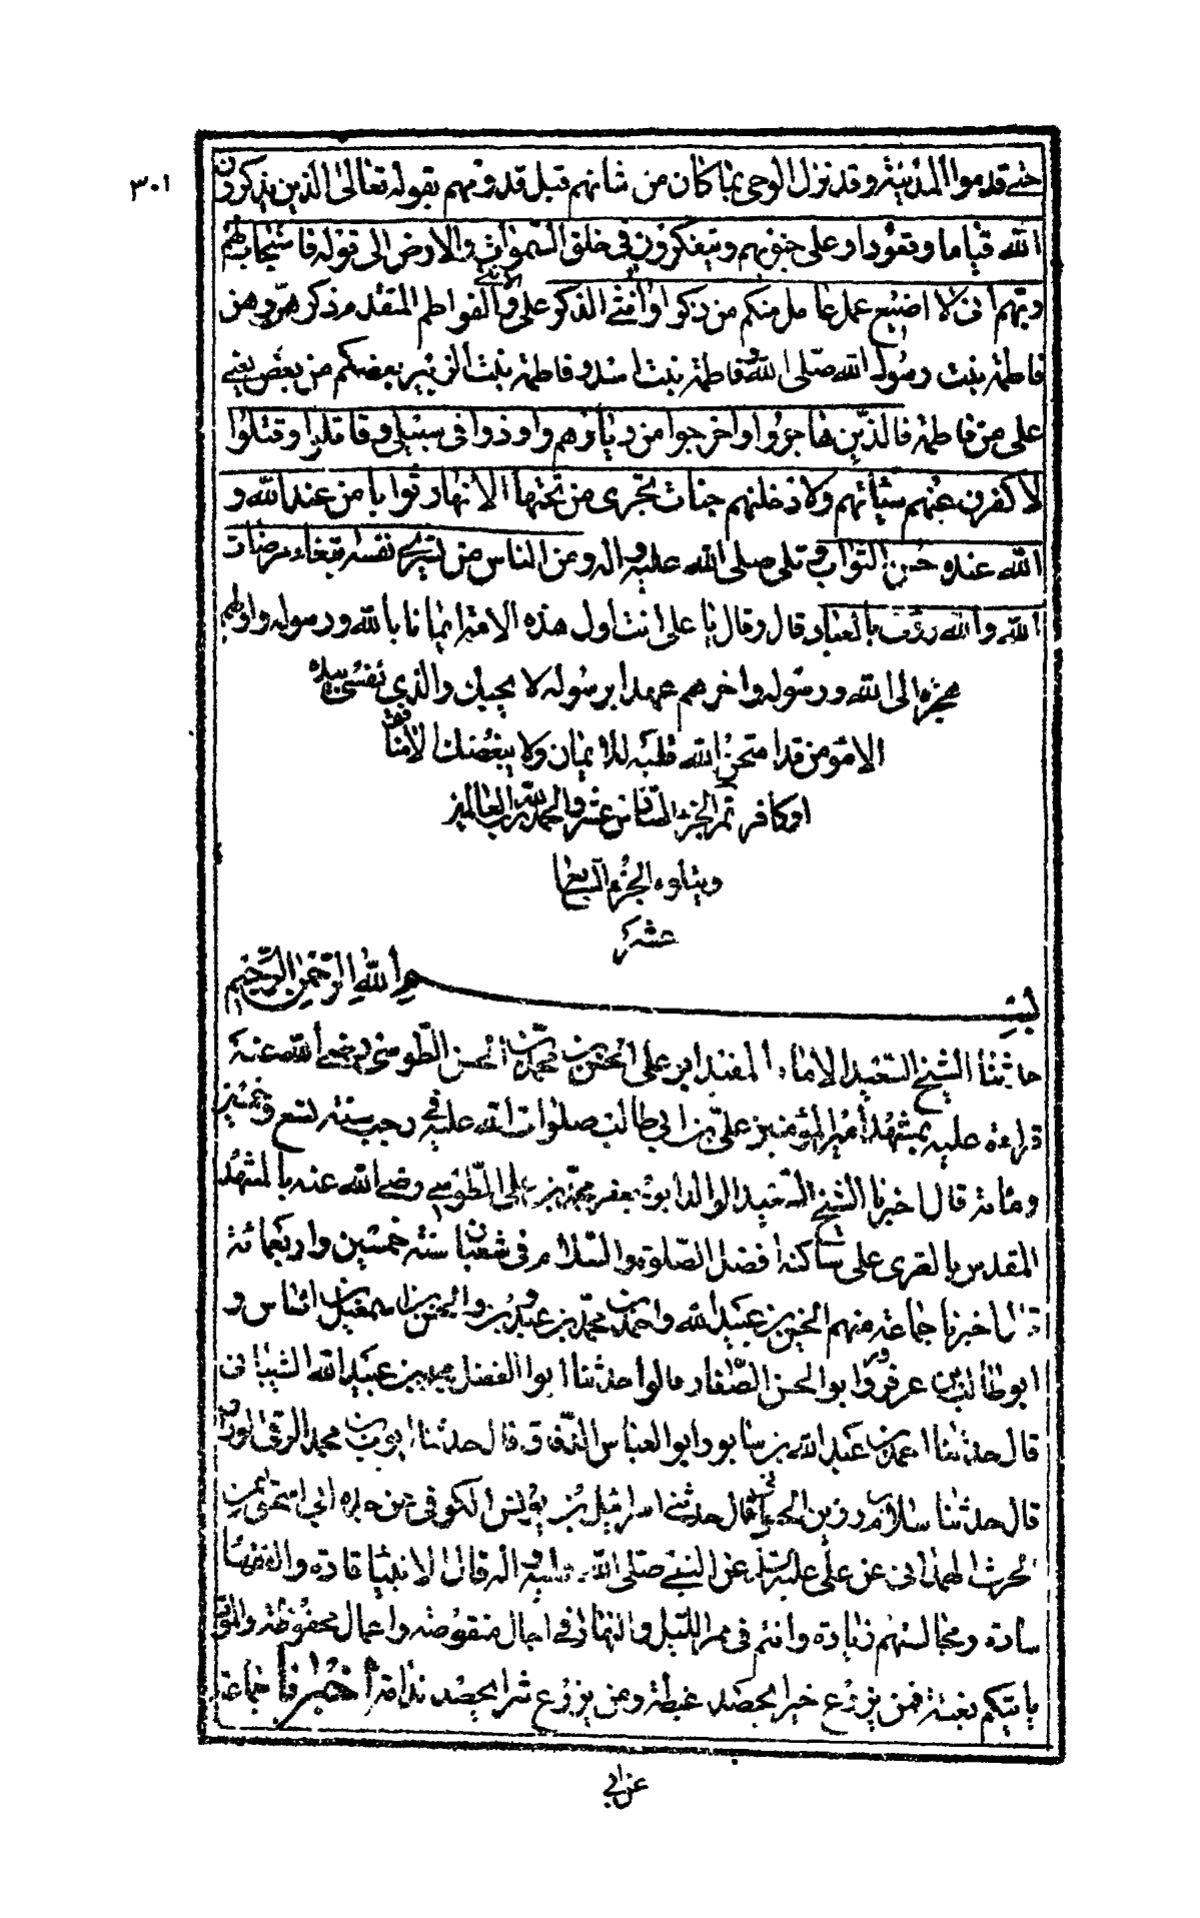 ٣٠١
حتى قدموا المدينة وقد نزل الوحي بما كان من شانهم قبل قدومهم بقوله تعالى الذين يذكرون
الله قياما وقعودا وعلى جنوبهم ويتفكرون في خلق السموات والارض الى قوله فاستجاب لهم
ربهم انى لا اضيع عمل عامل منكم من ذكر او انثى الذكر على والانثى الفواطم المتقدم ذكرهن وهن
فاطمة بنت رسول الله صلى الله وفاطمة بنت اسد وفاطمة بنت الزبير بعضكم من بعض يعني
على من فاطمة فالذين هاجروا واخرجوا من ديارهم واوذوا فى سبيلي وقاتلوا وقتلوا
لاكفرن عنهم سيئاتهم ولادخلنهم جنات تجرى من تحتها الانهار ثوابا من عند الله و
الله عنده حسن الثواب وتلى صلى الله عليه واله ومن الناس من يشرى نفسه ابتغاء مرضات
الله والله رؤف بالعباد قال وقال يا على انت اول هذه الامة ايمانا بالله ورسوله واولهم
هجرة الى الله ورسوله واخرهم عهدا برسوله لا يحبك والذي نفسي بيده
الا مؤمن قد امتحن الله قلبه للايمان ولا يبغضك الا منافق
او كافر تم الجزء السادس عشر والحمد لله رب العالمين
ويتلوه الجزء السابع
عشر
بسم الله الرحمن الرحيم
حدثنا الشيخ السعيد الامام المفيد ابو على الحسن بن محمد بن الحسن الطوسي رضي الله عنه
قراءة عليه بمشهد امير المؤمنين على بن ابي طالب صلوات الله عليه في رجب سنة تسع وخمسين
ومائة قال اخبرنا الشيخ السعيد الوالد ابو جعفر محمد بن على الطوسي رضي الله عنه بالمشهد
المقدس بالغرى على ساكنه افضل الصلوة والسلام في شعبان سنة خمسين واربعمائة
قال اخبرنا جماعة منهم الحسين بن عبيد الله واحمد بن محمد بن عبدون والحسن بن اسمعيل بن اشناس و
ابو طالب بن عرفور وابو الحسن الصفار قالوا حدثنا ابو المفضل محمد بن عبيد الله الشيباني
قال حدثنا احمد بن عبد الله بن سابور وابو العباس الدقاق قال حدثنا ايوب بن محمد الرقي الوزان
قال حدثنا سلام بن رزين الحراني قال حدثني اسرائيل بن يونس الكوفي عن جده ابي اسحق عن
الحرث الهمداني عن على عليه السلم عن النبي صلى الله عليه واله قال الانبيا قادة والفقها
سادة ومجالستهم زيادة وانتم في ممر الليل والنهار في اجال منقوصة واعمال محفوظة والموت
ياتيكم بغتة فمن يزرع خيرا يحصد غبطة ومن يزرع شرا يحصد ندامة اخبرنا جماعة
عن ابي